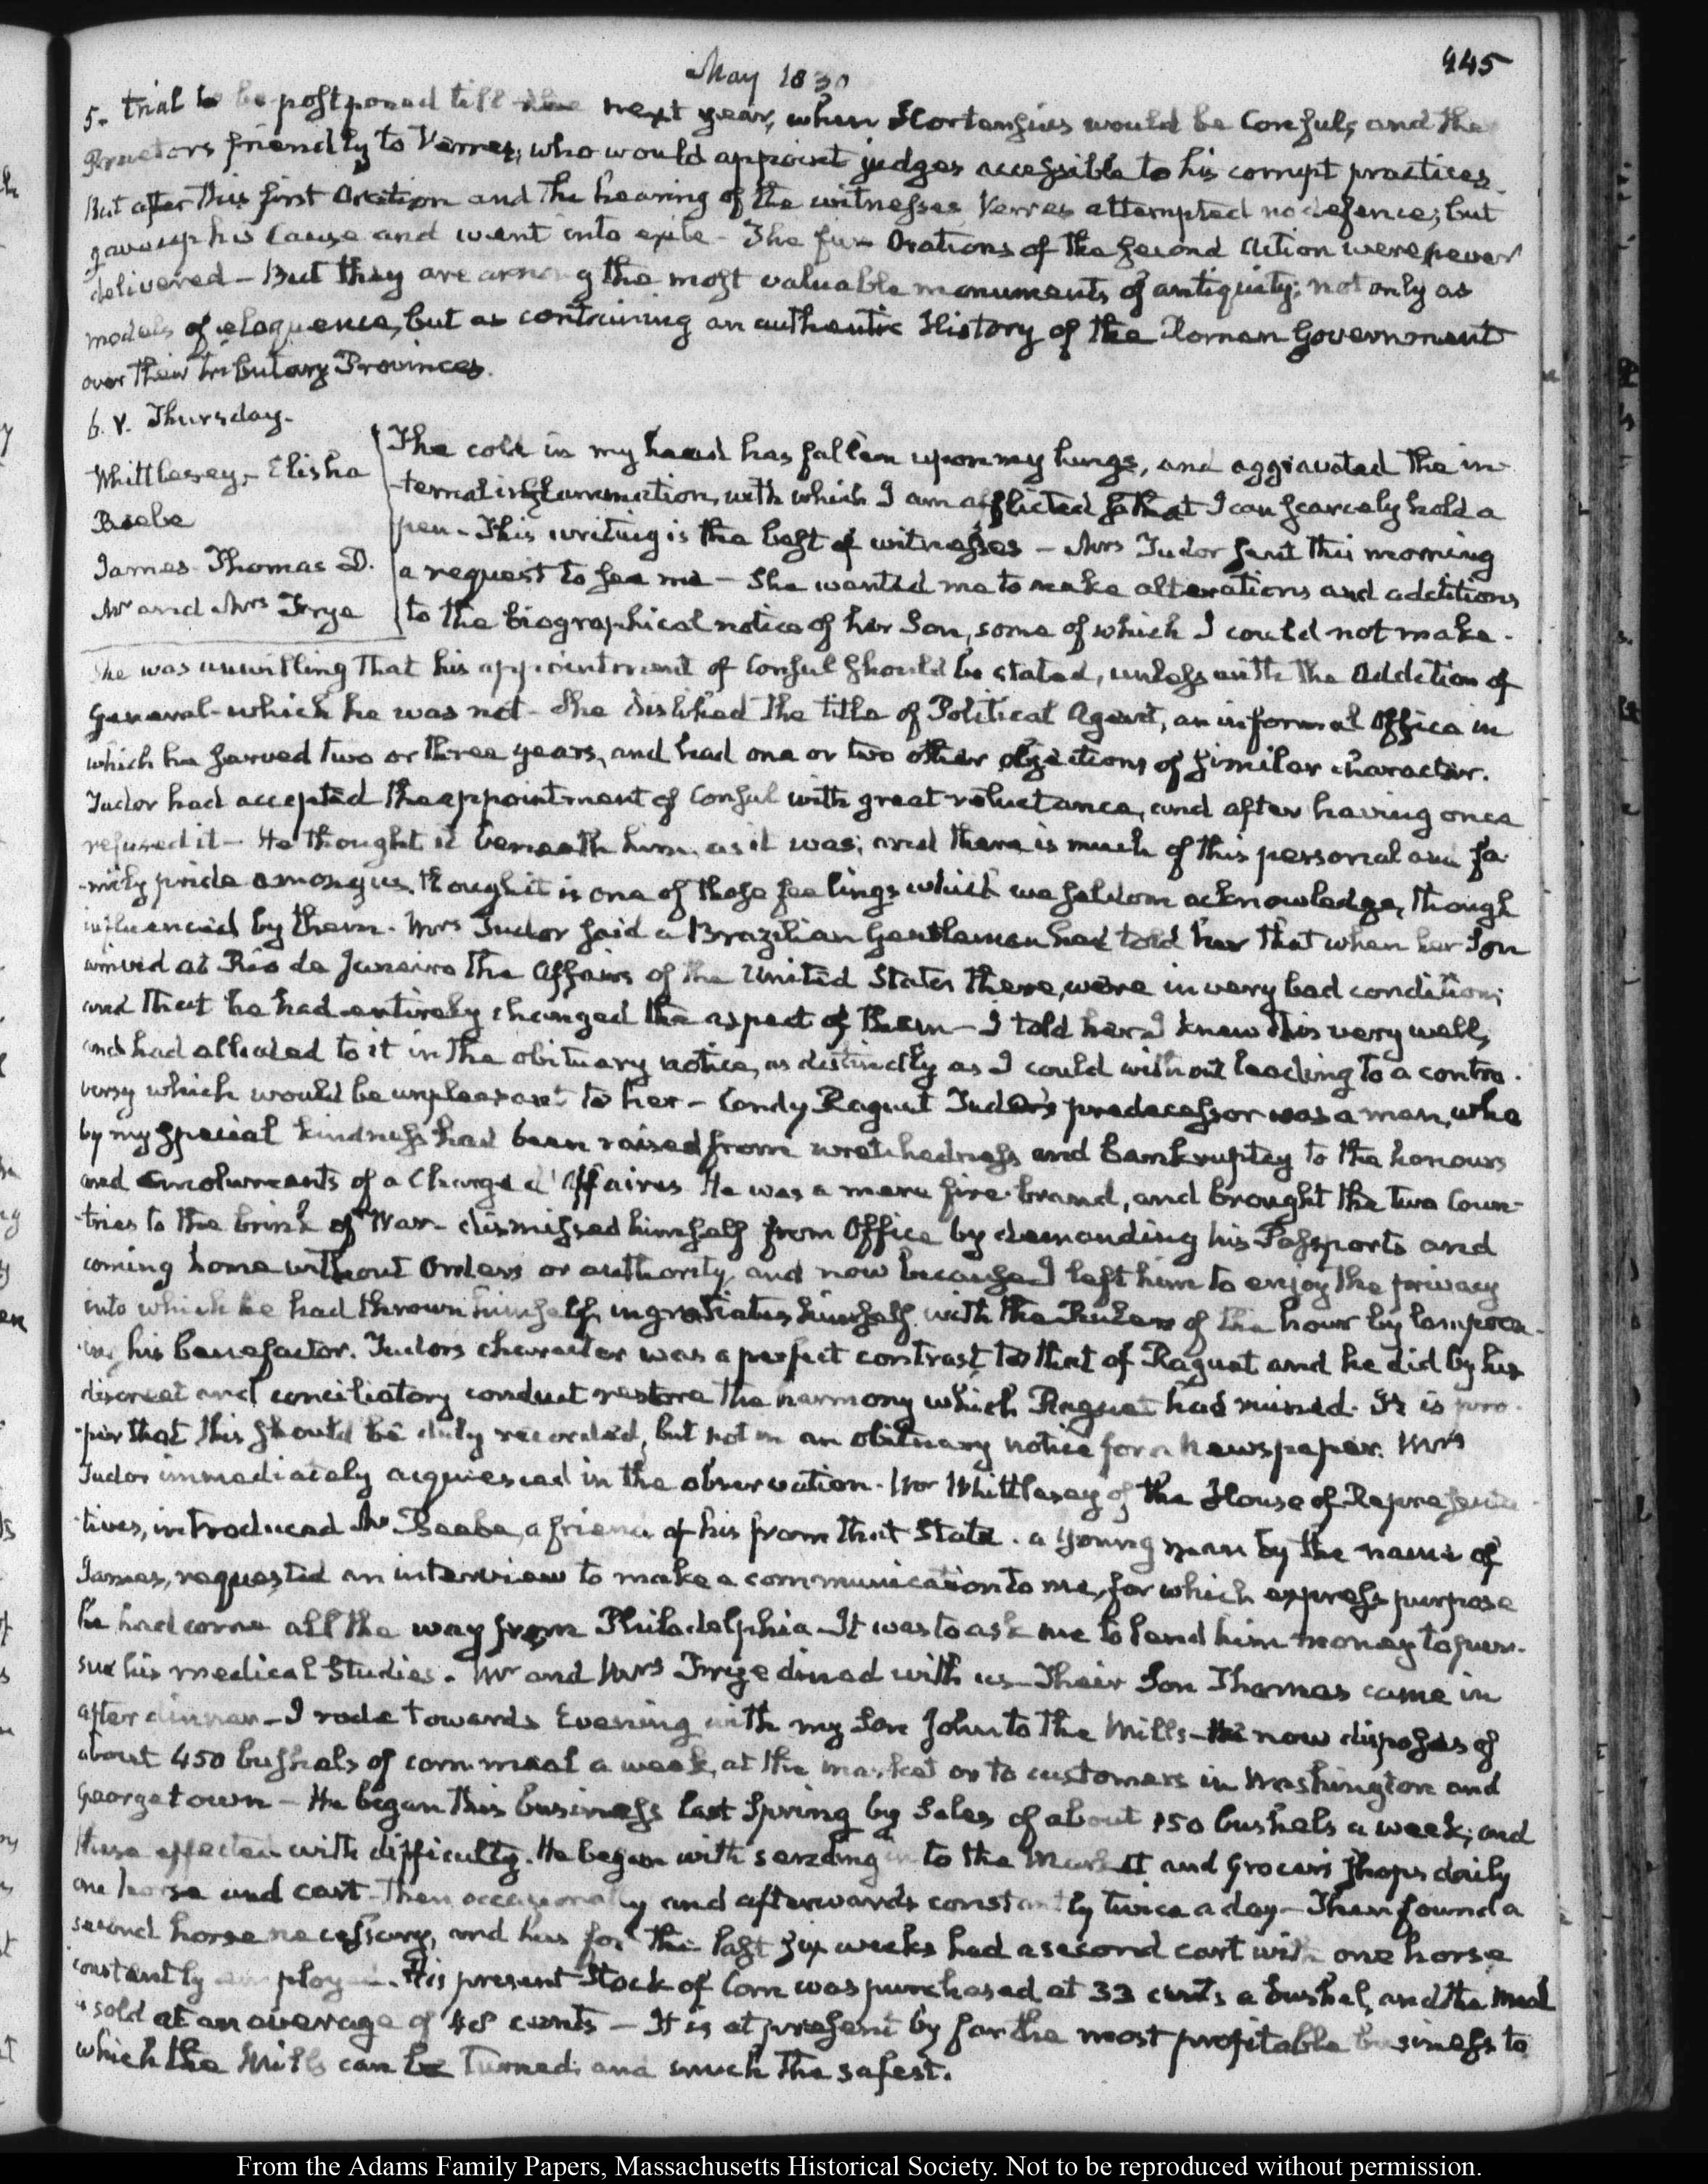 May 1830
445
5. trial to be postponed till the next year, when Hortensius would be Consul, and the
Praetors friendly to Verres, who would appoint judges accessible to his corrupt practices.
But after this first Oration and the hearing of the witnesses Verres attempted no defence; but
gave up his Cause and went into exile - The five Orations of the second Action were never
delivered - But they are among the most valuable monuments of antiquity; not only as
models of eloquence, but as containing an authentic History of the Roman Government
over their tributary Provinces.
6. V. Thursday.
Whittlesey, Elisha
Beebe
James Thomas D.
Mr and Mrs Frye
The cold in my head has fallen upon my lungs, and aggravated the in-
-ternal inflammation, with which I am afflicted so that I can scarcely hold a
pen - This writing is the best of witnesses - Mrs Tudor sent this morning
a request to see me - She wanted me to make alterations and additions
to the biographical notice of her Son, some of which I could not make.
She was unwilling that his appointment of Consul should be stated, unless with the Addition of
General - which he was not - She disliked the title of Political Agent, an informal Office in
which he served two or three years, and had one or two other objections of similar character.
Tudor had accepted the appointment of Consul with great reluctance, and after having once
refused it - He thought it beneath him, as it was; and there is much of this personal and fa-
-mily pride among us, though it is one of those feelings which we seldom acknowledge, though
influenced by them. Mrs Tudor said a Brazilian Gentleman had told her that when her Son
arrived at Rio de Janeiro the Affairs of the United States there, were in very bad condition;
and that he had entirely changed the aspect of them - I told her I knew this very well,
and had alluded to it in the obituary notice, as distinctly as I could without leading to a contro-
versy which would be unpleasant to her - Condy Raguet Tudor's predecessor was a man, who
by my special kindness had been raised from wretchedness and bankruptcy to the honours
and emoluments of a Charge d'Affaires. He was a mere fire-brand, and brought the two Coun-
-tries to the brink of War - dismissed himself from Office by demanding his Passports and
coming home without Orders or authority, and now because I left him to enjoy the privacy
into which he had thrown himself, ingratiates himself with the Rulers of the hour by lampoon-
-ing his benefactor. Tudors character was a perfect contrast to that of Raguet and he did by his
discreet and conciliatory conduct restore the harmony which Raguet had ruined. It is pro-
-per that this should be duly recorded, but not in an obituary notice for a newspaper. Mrs
Tudor immediately acquiesced in the observation. Mr Whittlesey of the House of Representa-
-tives, introduced Mr Beebe, a friend of his from that State. a young man by the name of
James, requested an interview to make a communication to me, for which express purpose
he had come all the way from Philadelphia - It was to ask me to lend him money to pur-
sue his medical Studies. Mr and Mrs Frye dined with us - Their Son Thomas came in
after dinner - I rode towards Evening with my Son John to the Mills - He now disposes of
about 450 bushels of corn meal a week, at the market or to customers in Washington and
Georgetown - He began this business last Spring by Sales of about 150 bushels a week; and
these effected with difficulty. He began with sending in to the Market and Grocers shops daily
one horse and cart - Then occasionally and afterwards constantly twice a day - Then found a
second horse necessary, and has for the last six weeks had a second cart with one horse
constantly employed. His present Stock of Corn was purchased at 33 cents a bushel, and the meal
is sold at an average of 48 cents - It is at present by far the most profitable business to
which the Mills can be turned, and much the safest.
From the Adams Family Papers, Massachusetts Historical Society. Not to be reproduced without permission.